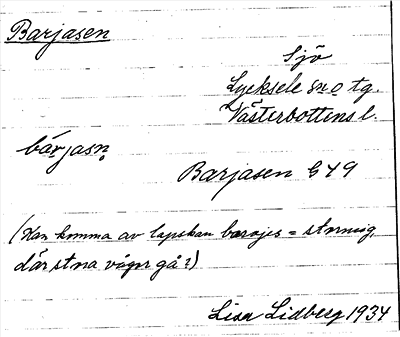 Barjasen
Sjö
Lycksele sn o tg.
Västerbottens l.
bárjasn̥
Barjasen G 49
(Kan komma av lapskan barajes = stormig,
där stna vågor gå?)
Lisa Lidberg 1934